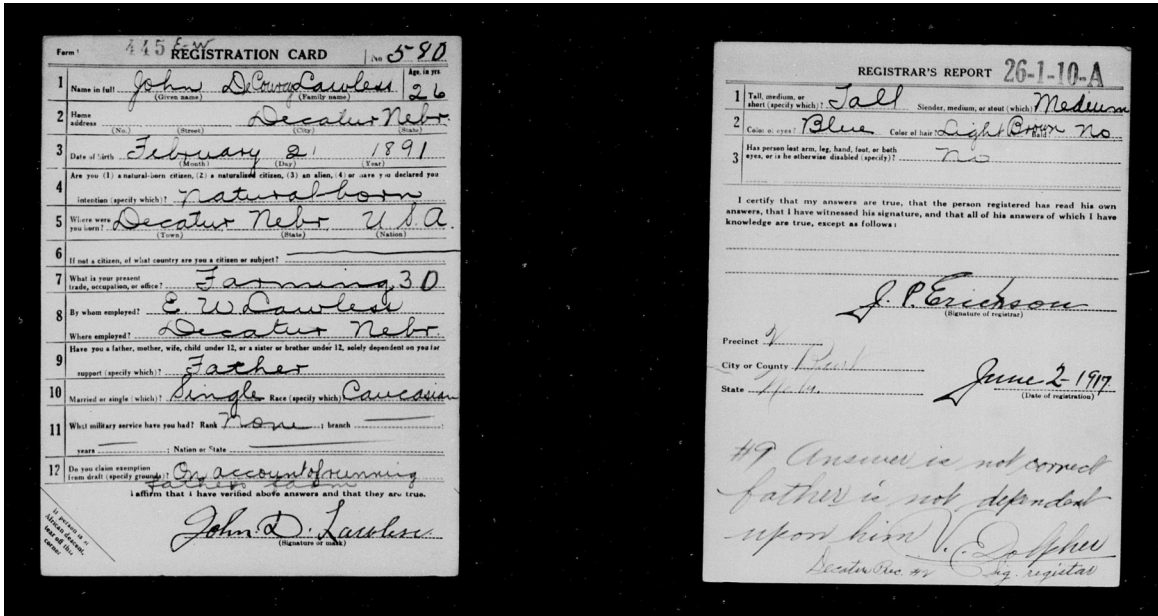 Form 1 445 E-W REGISTRATION CARD No 580
1 Name in full John DeCourcy Lawless Age, in yrs 26
(Given name) (Family name)
2 Home address Decatur Nebr.
(No.) (Street) (City) (State)
3 Date of birth February 2 1891
(Month) (Day) (Year)
4 Are you (1) a natural-born citizen, (2) a naturalized citizen, (3) an alien, (4) or have you declared you
intention (specify which)? Natural born
5 Where were you born? Decatur Nebr. U.S.A.
(Town) (State) (Nation)
6 If not a citizen, of what country are you a citizen or subject?
7 What is your present trade, occupation, or office? Farming 30
8 By whom employed? E. W Lawless
Where employed? Decatur Nebr.
9 Have you a father, mother, wife, child under 12, or a sister or brother under 12, solely dependent on you for
support (specify which)? Father
10 Married or single (which)? Single Race (specify which) Caucasian
11 What military service have you had? Rank None ; branch
years ; Nation or State
12 Do you claim exemption from draft (specify grounds)? On account of running
fathers farm
I affirm that I have verified above answers and that they are true.
John D. Lawless
(Signature or mark)
If person is of
African descent,
tear off this
corner
REGISTRAR'S REPORT 26-1-10-A
1 Tall, medium, or short (specify which)? Tall Slender, medium, or stout (which) Medium
2 Color of eyes? Blue Color of hair? Light Brown Bald? No
3 Has person lost arm, leg, hand, foot, or both
eyes, or is he otherwise disabled (specify)? No
I certify that my answers are true, that the person registered has read his own
answers, that I have witnessed his signature, and that all of his answers of which I have
knowledge are true, except as follows:
J. P. Erickson
(Signature of registrar)
Precinct 2
City or County Burt
State Nebr.
June 2 - 1917
(Date of registration)
#9 Answer is not correct
father is not dependent
upon him V. C. Dolpher
Decatur Prec. #2 Sig. registar